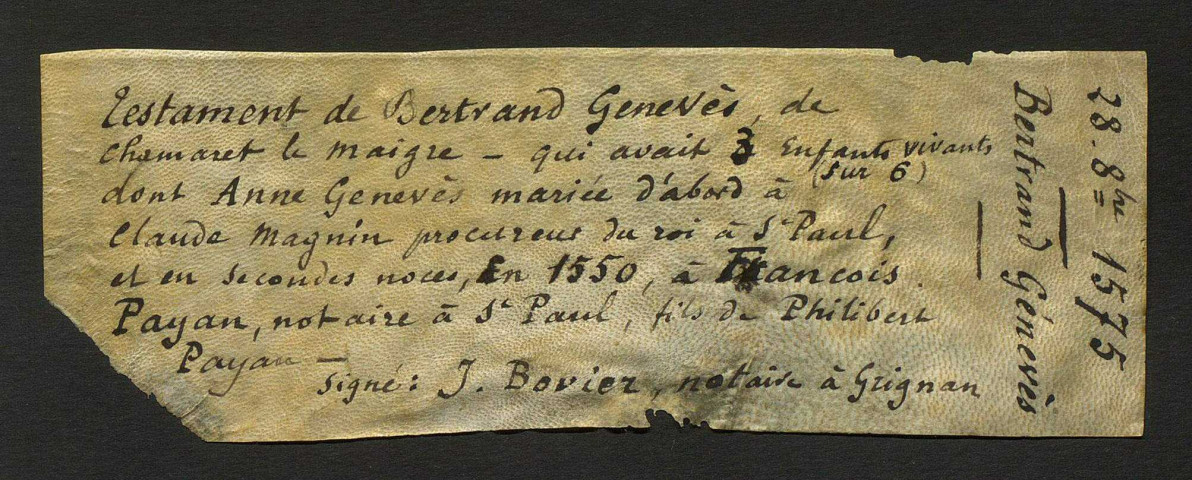 Testament de Bertrand Genevès, de
Chamaret le maigre – qui avait 3 Enfants vivants
(sur 6)
dont Anne Genevès mariée d'abord à
Claude Magnin procureur du roi à St Paul,
et en secondes noces, En 1550, à Francois
Payan, notaire à St Paul, fils de Philibert
Payan –
signé : J. Bovier, notaire à Grignan
28. 8bre 1575
Bertrand Génevès